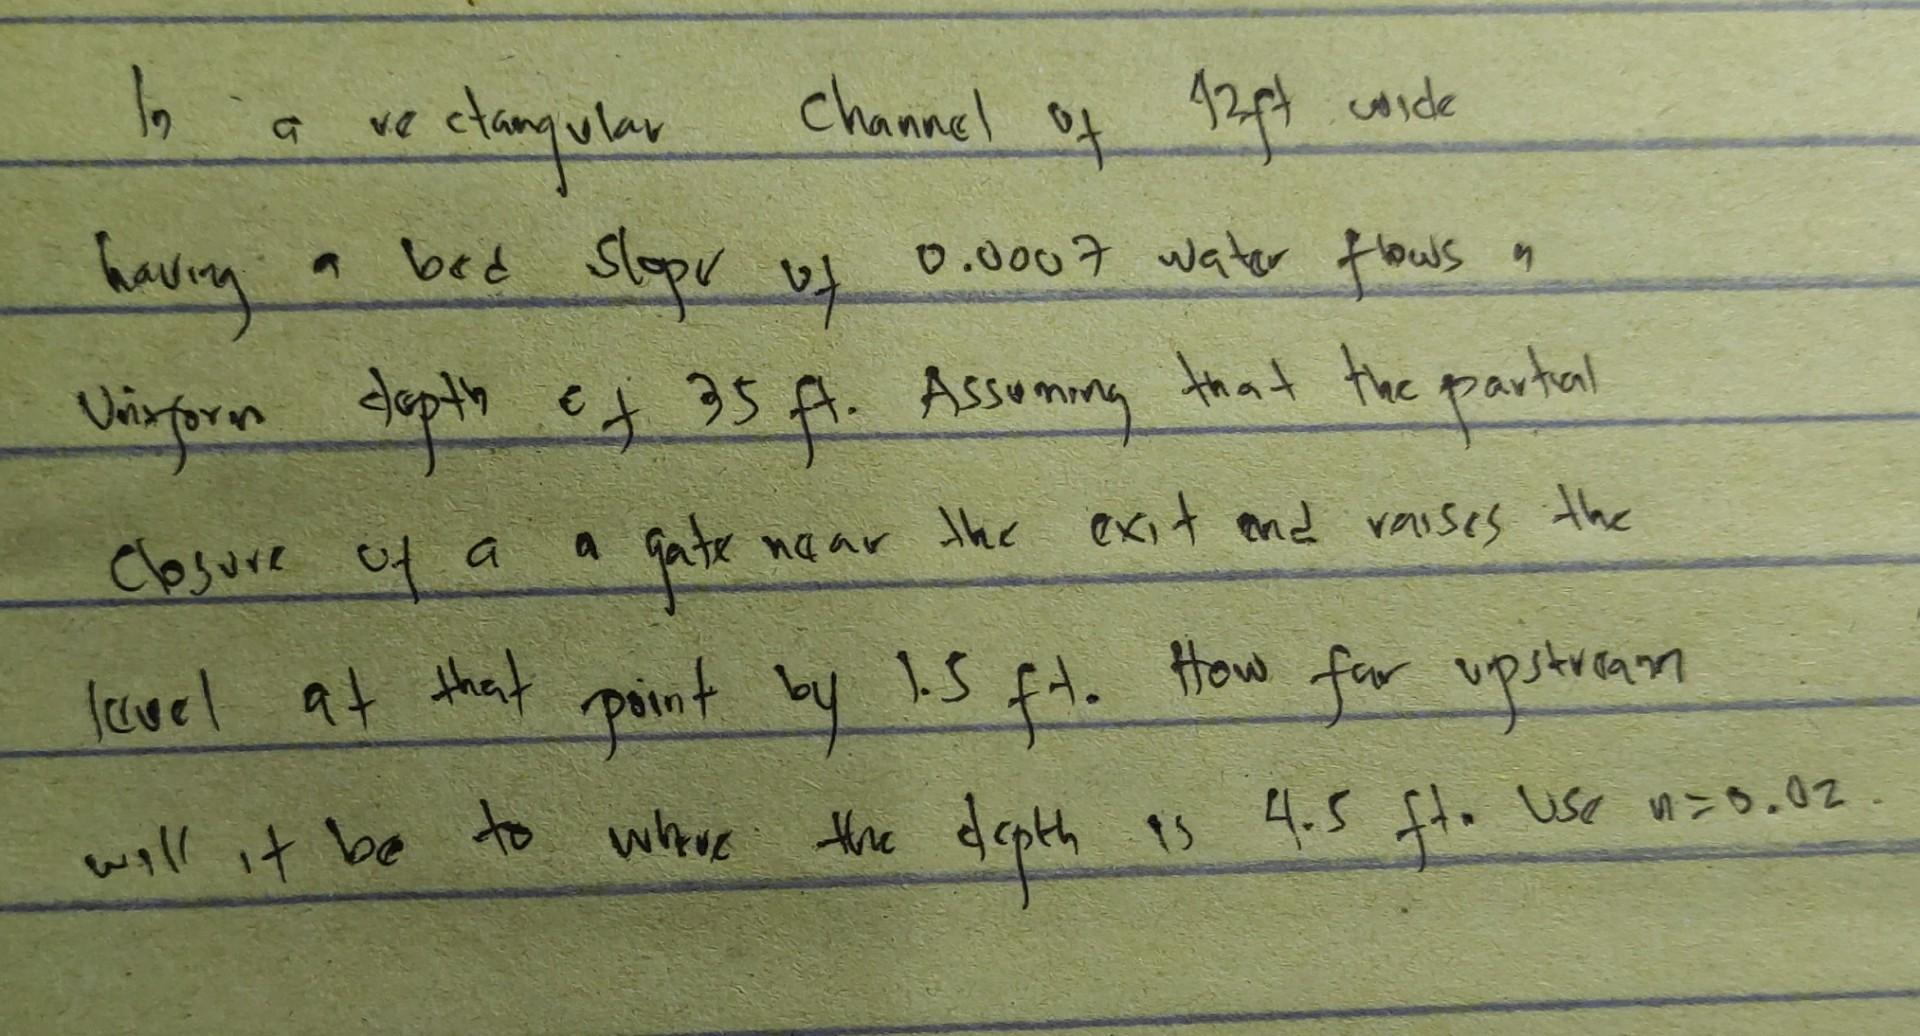 In a rectangular channel of 12ft wide
having a bed slope of 0.0007 water flows a
Uniform depth of 35 ft. Assuming that the partial
closure of a a gate near the exit end raises the
level at that point by 1.5 ft. How far upstream
will it be to where the depth is 4.5 ft. Use n=0.02.